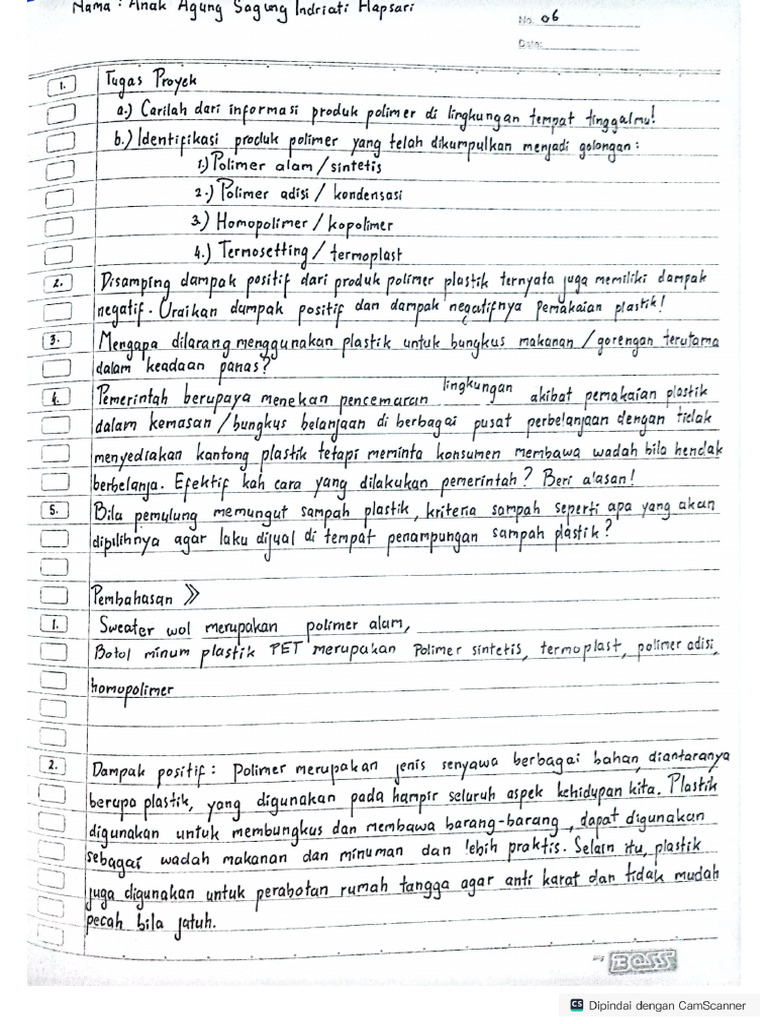 Nama : Anak Agung Sagung Indriati Hapsari
No. 06
Date:
1. Tugas Proyek
a.) Carilah dari informasi produk polimer di lingkungan tempat tinggalmu!
b.) Identifikasi produk polimer yang telah dikumpulkan menjadi golongan :
1.) Polimer alam / sintetis
2.) Polimer adisi / kondensasi
3.) Homopolimer / kopolimer
4.) Termosetting / termoplast
2. Disamping dampak positif dari produk polimer plastik ternyata juga memiliki dampak
negatif. Uraikan dampak positif dan dampak negatifnya pemakaian plastik!
3. Mengapa dilarang menggunakan plastik untuk bungkus makanan / gorengan terutama
dalam keadaan panas?
4. Pemerintah berupaya menekan pencemaran lingkungan akibat pemakaian plastik
dalam kemasan / bungkus belanjaan di berbagai pusat perbelanjaan dengan tidak
menyediakan kantong plastik tetapi meminta konsumen membawa wadah bila hendak
berbelanja. Efektif kah cara yang dilakukan pemerintah? Beri alasan!
5. Bila pemulung memungut sampah plastik, kriteria sampah seperti apa yang akan
dipilihnya agar laku dijual di tempat penampungan sampah plastik?
Pembahasan »
1. Sweater wol merupakan polimer alam,
Botol minum plastik PET merupakan Polimer sintetis, termoplast, polimer adisi,
homopolimer
2. Dampak positif : Polimer merupakan jenis senyawa berbagai bahan, diantaranya
berupa plastik, yang digunakan pada hampir seluruh aspek kehidupan kita. Plastik
digunakan untuk membungkus dan membawa barang-barang, dapat digunakan
sebagai wadah makanan dan minuman dan lebih praktis. Selain itu, plastik
juga digunakan untuk perabotan rumah tangga agar anti karat dan tidak mudah
pecah bila jatuh.
BOSS
CS Dipindai dengan CamScanner